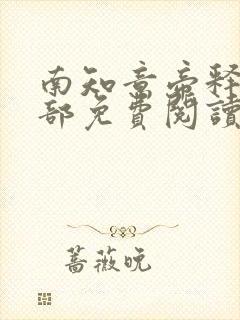 南知意帝释
部免費閱讀
蔷薇晚